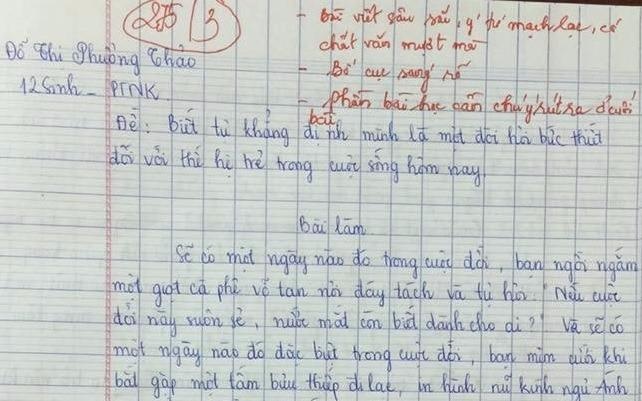 2,75 / 3
- bài viết sâu sắc, ý tứ mạch lạc, có
chất văn mượt mà
- Bố cục sáng rõ
- phần bài học cần chú ý rút ra ở cuối
bài
Đỗ Thi Phường Thảo
12 Sinh - PTNK
Đề: Biết tự khẳng định mình là một đòi hỏi bức thiết
đối với thế hệ trẻ trong cuộc sống hôm nay
Bài làm
Sẽ có một ngày nào đó trong cuộc đời, bạn ngồi ngắm
một giọt cà phê vỡ tan nơi đáy tách và tự hỏi: "Nếu cuộc
đời này suôn sẻ, nước mắt còn biết dành cho ai?" Và sẽ có
một ngày nào đó đặc biệt trong cuộc đời, bạn mỉm cười khi
bắt gặp một tấm bưu thiếp đi lạc, in hình nữ kình ngư Ánh